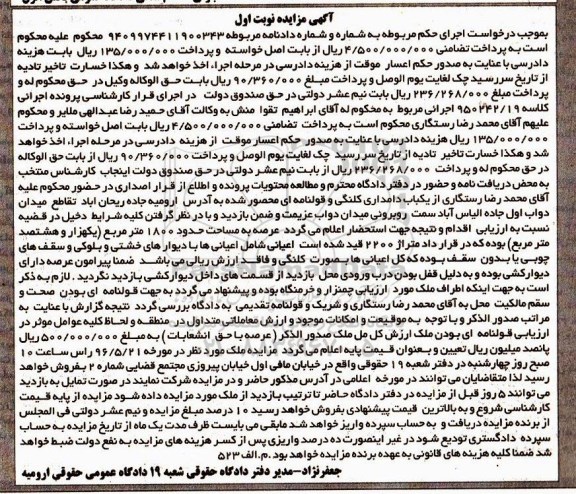 آگهی مزایده نوبت اول
بموجب درخواست اجرای حکم مربوطه به شماره و شماره دادنامه مربوطه ۹۴۰۹۹۷۴۴۱۱۹۰۰۳۴۳ محکوم علیه محکوم
است به پرداخت تضامنی ۴/۵۰۰/۰۰۰/۰۰۰ ریال از بابت اصل خواسته و پرداخت ۱۳۵/۰۰۰/۰۰۰ ریال بابت هزینه
دادرسی با عنایت به صدور حکم اعسار موقت از هزینه دادرسی در مرحله اجراء اخذ خواهد شد و هکذا خسارت تاخیر تادیه
از تاریخ سررسید چک لغایت یوم الوصل و پرداخت مبلغ ۹۰/۳۶۰/۰۰۰ ریال بابت حق الوکاله وکیل در حق محکوم له و
پرداخت مبلغ ۲۳۶/۲۶۸/۰۰۰ ریال بابت نیم عشر دولتی در حق صندوق دولت در اجرای قرار کارشناسی پرونده اجرائی
کلاسه ۹۵۰۲۴۲/۱۹ اجرائی مربوط به محکوم له آقای ابراهیم تقوا منش به وکالت آقای حمید رضا عبدالهی ملایر و محکوم
علیهم آقای محمد رضا رستگاری محکوم است به پرداخت تضامنی ۴/۵۰۰/۰۰۰/۰۰۰ ریال بابت اصل خواسته و پرداخت
۱۳۵/۰۰۰/۰۰۰ ریال هزینه دادرسی با عنایت به صدور حکم اعسار موقت از هزینه دادرسی در مرحله اجراء اخذ خواهد
شد و هکذا خسارت تاخیر تادیه از تاریخ سررسید چک لغایت یوم الوصل و پرداخت ۹۰/۳۶۰/۰۰۰ ریال از بابت حق الوکاله
در حق محکوم له و پرداخت ۲۳۶/۲۶۸/۰۰۰ ریال از بابت نیم عشر دولتی در حق صندوق دولت اینجاب کارشناس منتخب
به محض دریافت نامه و حضور در دفتر دادگاه محترم و مطالعه محتویات پرونده و اطلاع از قرار اصداری در حضور محکوم علیه
آقای محمد رضا رستگاری از یکباب دامداری کلنگی و قولنامه ای محصور شده به آدرس ارومیه جاده ریحان اباد تقاطع میدان
دواب اول جاده الیاس آباد سمت روبرونی میدان دواب عزیمت و ضمن بازدید و با در نظر گرفتن کلیه شرایط دخیل در قضیه
نسبت به ارزیابی اقدام و نتیجه جهت استحضار اعلام می گردد عرصه به مساحت حدود ۱۸۰۰ متر مربع (یکهزار و هشتصد
متر مربع) بوده که در قرار داد متراژ ۲۲۰۰ قید شده است اعیانی شامل اعیانی ها با دیوار های خشتی و بلوکی و سقف های
چوبی یا بدون سقف بوده که کل اعیانی ها بصورت کلنگی و فاقد ارزش ریالی می باشد ضمنا پیرامون عرصه دارای
دیوارکشی بوده و به دلیل قفل بودن درب ورودی محل بازدید از قسمت های داخل دیوارکشی بازدید نگردید . لازم به ذکر
است به جهت اینکه اطراف ملک مورد ارزیابی چمنزار و خرمنگاه بوده و پیشنهاد می گردد به جهت قولنامه ای بودن صحت و
سقم مالکیت محل به آقای محمد رضا رستگاری و شریک و قولنامه تقدیمی به دادگاه بررسی گردد نتیجه گزارش با عنایت به
مراتب صدور الذکر و با توجه به موقیعت و امکانات موجود و ارزش معاملاتی متداول در منطقه و لحاظ کلیه عوامل موثر در
ارزیابی قولنامه ای بودن ملک ارزش کل مل ملک صدور الذکر ( عرصه با حق انشعابات ) به مبلغ ۵۰۰/۰۰۰/۰۰۰ ریال
پانصد میلیون ریال تعیین و بعنوان قیمت پایه اعلام می گردد مزایده ملک مورد نظر در مورخه ۹۶/۵/۲۱ راس ساعت ۱۰
صبح روز چهارشنبه در دفتر شعبه ۱۹ حقوقی واقع در خیابان مافی اول خیابان پیروزی مجتمع قضایی شماره ۲ بفروش خواهد
رسید لذا متقاضیان می توانند در مورخه اعلامی در آدرس مذکور حاضر و در مزایده شرکت نمایند در صورت تمایل به بازدید
می توانند ۵ روز قبل از مزایده در دفتر دادگاه حاضر تا ترتیب بازدید از ملک مورد مزایده داده شود مزایده از پایه قیمت
کارشناسی شروع و به بالاترین قیمت پیشنهادی بفروش خواهد رسید ۱۰ درصد مبلغ مزایده و نیم عشر دولتی فی المجلس
از برنده مزایده دریافت و به حساب سپرده واریز خواهد شد مابقی می بایست ظرف مدت یک ماه از تاریخ مزایده به حساب
سپرده دادگستری تودیع شود در غیر اینصورت ده درصد واریزی پس از کسر هزینه های مزایده به نفع دولت ضبط خواهد
شد ضمنا کلیه هزینه های قانونی به عهده برنده مزایده خواهد بود .م.الف ۵۲۳
جعفرنژاد-مدیر دفتر دادگاه حقوقی شعبه ۱۹ دادگاه عمومی حقوقی ارومیه